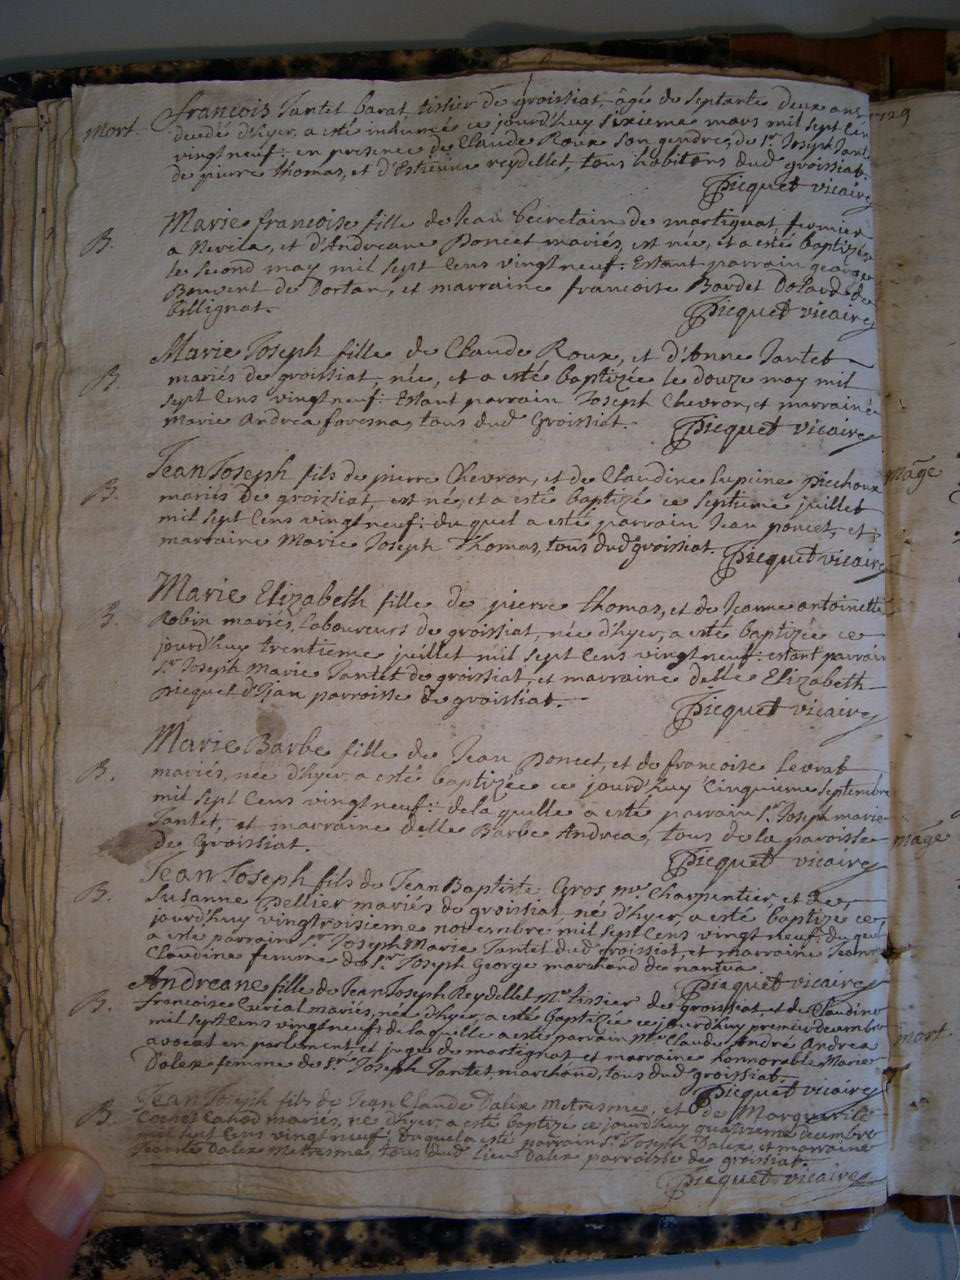 françois Tantet barat, tissier de groissiat, âgé de septante deux ans
mort. decedé d'hyer, a esté inhumé ce jourd'huy sixieme mars mil sept cen 1729
vingt neuf: en presence de Claude Roux son gendre, de sr. Joseph Tant
de pierre thomas, et d'Estienne reydellet, tous habitans dud groissiat.
Picquet vicaire
Marie françoise fille de Jean Secretain de martignat, fermier
B. a Nevila, et d'Andreane Poncet mariés, est née, et a esté baptizée
le second may mil sept cens vingt neuf: Estant parrain george
Bonvent de Dortan, et marraine françoise Bardet Dolard de
bellignat.
Picquet vicaire
Marie Joseph fille de Claude Roux, et d'Anne Tantet
B. mariés de groissiat, née, et a esté baptizée le douze may mil
sept cens vingt neuf: Estant parrain Joseph Chevron, et marraine
Marie Andrea tous dud Groissiat.
Picquet vicaire
Jean Joseph fils de pierre Chevron, et de Claudine lupine
B. mariés de groissiat, est né, et a esté baptizé ce septieme juillet
mil sept cens vingt neuf: du quel a esté parrain Jean poncet, et
marraine Marie Joseph Thomas, tous dud groissiat.
Picquet vicaire
Marie Elizabeth fille de pierre thomas, et de Jeanne antoinette
B. Robin mariés, laboureurs de groissiat, née d'hyer, a esté baptizée ce
jourd'huy trentieme juillet mil sept cens vingt neuf: estant parrain
sr. Joseph Marie Tantet de groissiat, et marraine delle Elizabeth
picquet d'Jjan parroisse de groissiat.
Picquet vicaire
Marie Barbe fille de Jean Poncet, et de françoise Levrat
B. mariés, née d'hyer, a esté baptizée ce jourd'huy cinquieme septembre
mil sept cens vingt neuf: de la quelle a esté parrain sr. Joseph marie
Tantet, et marraine delle Barbe Andrea, tous de la paroisse
de Groissiat.
Picquet vicaire
Jean Joseph fils de Jean Baptiste Gros me. Charpentier, et de
B. Susanne Pellier mariés de groissiat, né d'hyer, a esté baptizé ce
jourd'huy vingtroisieme novembre mil sept cens vingt neuf: du quel
a esté parrain sr. Joseph Marie Tantet dud groissiat, et marraine Jeanne
Claudine femme de sr. Joseph George marchand de nantua.
Picquet vicaire
Andreane fille de Jean Joseph Reydellet me. tissier de groissiat, et de Claudine
B. françoise mariés, née d'hyer, a esté baptizée ce jourd'huy premier decembre
mil sept cens vingt neuf: de laquelle a esté parrain Me. Claude André Andrea
avocat en parlement, et juge de martignat, et marraine honnorable Marie
Dalex femme de sr. Joseph Tantet marchand, tous dud groissiat.
Picquet vicaire
Jean Joseph fils de Jean Claude Dalex Metresme, et de Marguerite
B. mariés, né d'hyer, a esté baptizé ce jourd'huy quatrieme decembre
mil sept cens vingt neuf: duquel a esté parrain sr. Joseph Dalex et marraine
Dalex Metresme, tous dud lieu Dalex parroisse de groissiat.
Picquet vicaire
mãge
mãge
mort